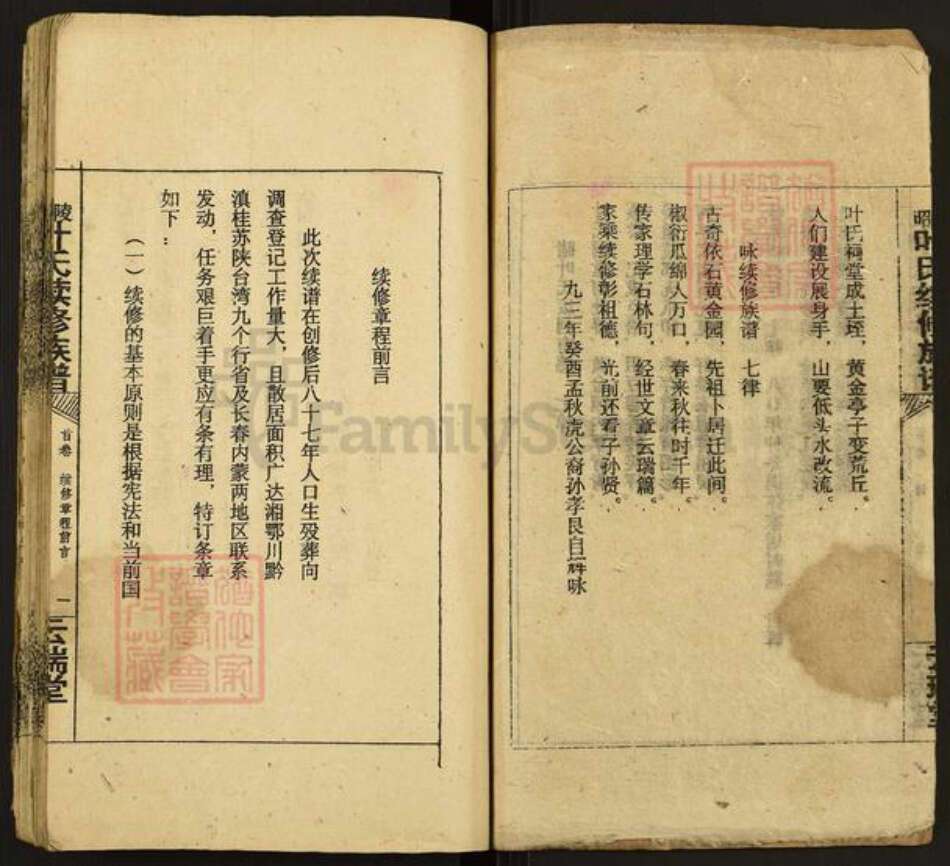 叶氏祠堂成土垤，黄金亭子变荒丘。
人们建设展身手，山要低头水改流。
咏续修族谱 七律
古奇依石黄金园，先祖卜居迁此间。
椒衍瓜绵人万口，春来秋往时千年。
传家理学石林句，经世文章云瑞篇。
家乘续修彰祖德，光前还看子孙贤。
九三年癸酉孟秋虎公裔孙孝良自辉咏
续修章程前言
此次续谱在创修后八十七年人口生殁葬向
调查登记工作量大，且散居面积广达湘鄂川黔
滇桂苏陕台湾九个行省及长春内蒙两地区联系
发动，任务艰巨着手更应有条有理，特订条章
如下：
（一）续修的基本原则是根据宪法和当前国
陵叶氏续修族谱
首卷 续修章程前言
一
云瑞堂
FamilySearch